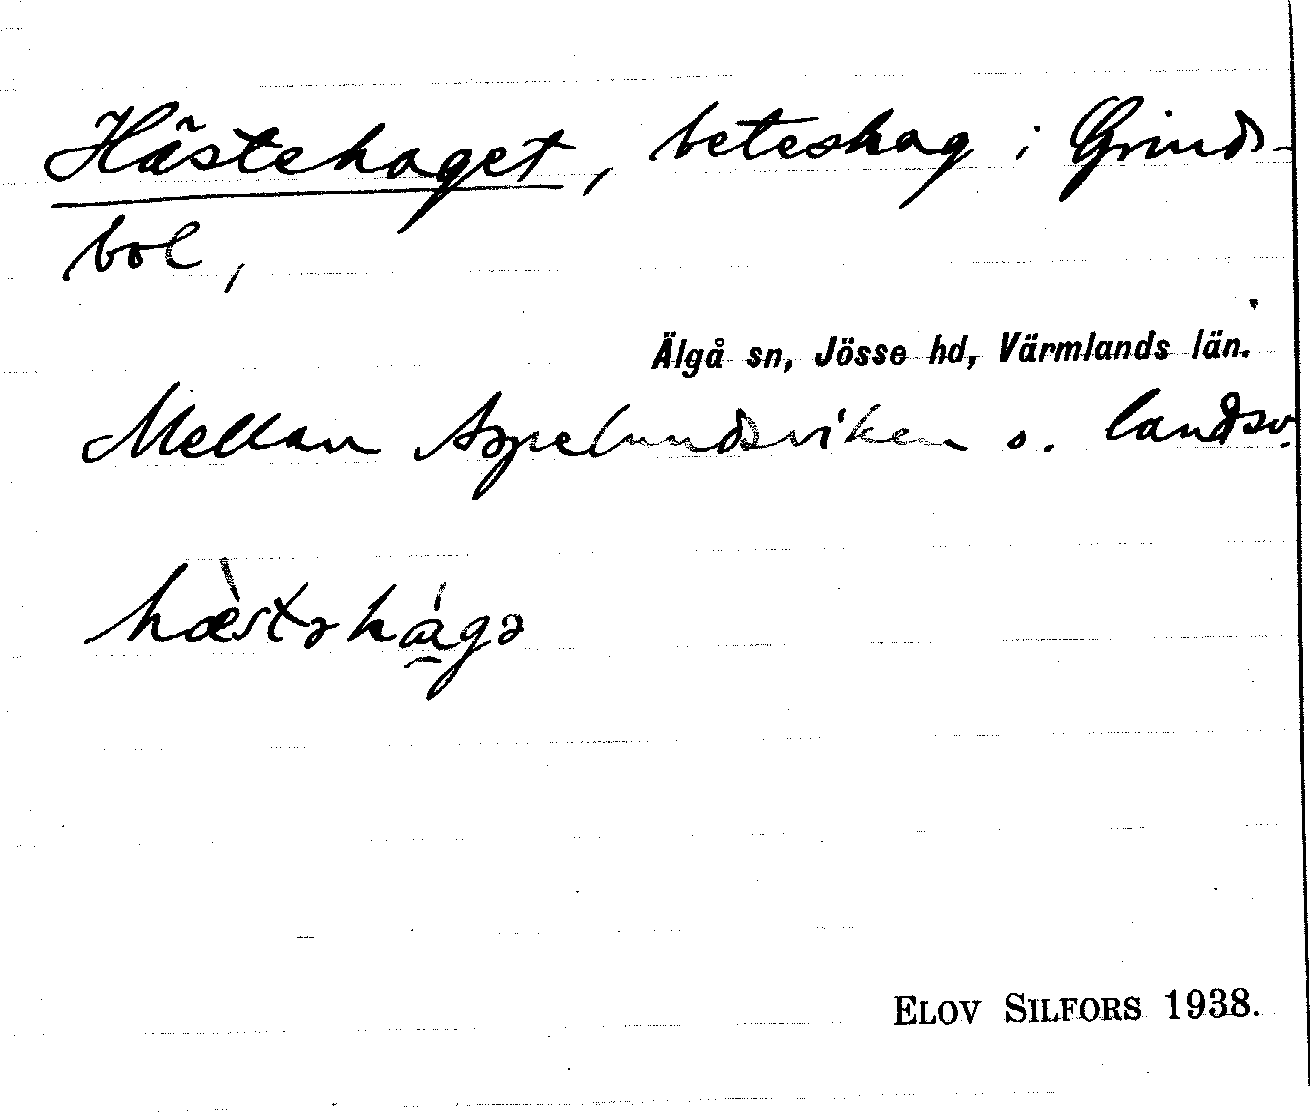 Hästehaget, beteshag i Grinds-
bol,
Älgå sn, Jösse hd, Värmlands län.
Mellan Appelundsviken o. landsv.
hæ̀stəhágə
ELOV SILFORS 1938.